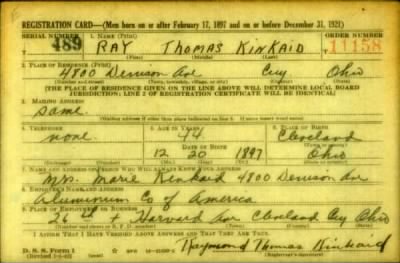 REGISTRATION CARD—(Men born on or after February 17, 1897 and on or before December 31, 1921)
SERIAL NUMBER 1. NAME (Print) ORDER NUMBER
489 RAY Thomas KinKaid 11158
(First) (Middle) (Last)
2. PLACE OF RESIDENCE (Print)
4800 Denison Ave Cuy Ohio
(Number and street) (Town, township, village, or city) (County) (State)
[THE PLACE OF RESIDENCE GIVEN ON THE LINE ABOVE WILL DETERMINE LOCAL BOARD
JURISDICTION; LINE 2 OF REGISTRATION CERTIFICATE WILL BE IDENTICAL]
3. MAILING ADDRESS
Same
[Mailing address if other than place indicated on line 2. If same insert word same]
4. TELEPHONE 5. AGE IN YEARS 6. PLACE OF BIRTH
none 44 Cleveland
DATE OF BIRTH (Town or county)
12 20 1897 Ohio
(Exchange) (Number) (Mo.) (Day) (Yr.) (State or country)
7. NAME AND ADDRESS OF PERSON WHO WILL ALWAYS KNOW YOUR ADDRESS
Mrs. Marie Kinkaid 4800 Denison Ave
8. EMPLOYER'S NAME AND ADDRESS
Aluminum Co of America
9. PLACE OF EMPLOYMENT OR BUSINESS
26 th + Harvard Ave Cleveland Cuy Ohio
(Number and street or R. F. D. number) (Town) (County) (State)
I AFFIRM THAT I HAVE VERIFIED ABOVE ANSWERS AND THAT THEY ARE TRUE.
D. S. S. Form 1
(Revised 1-1-42) (over) Raymond Thomas Kinkaid
(Registrant's signature)